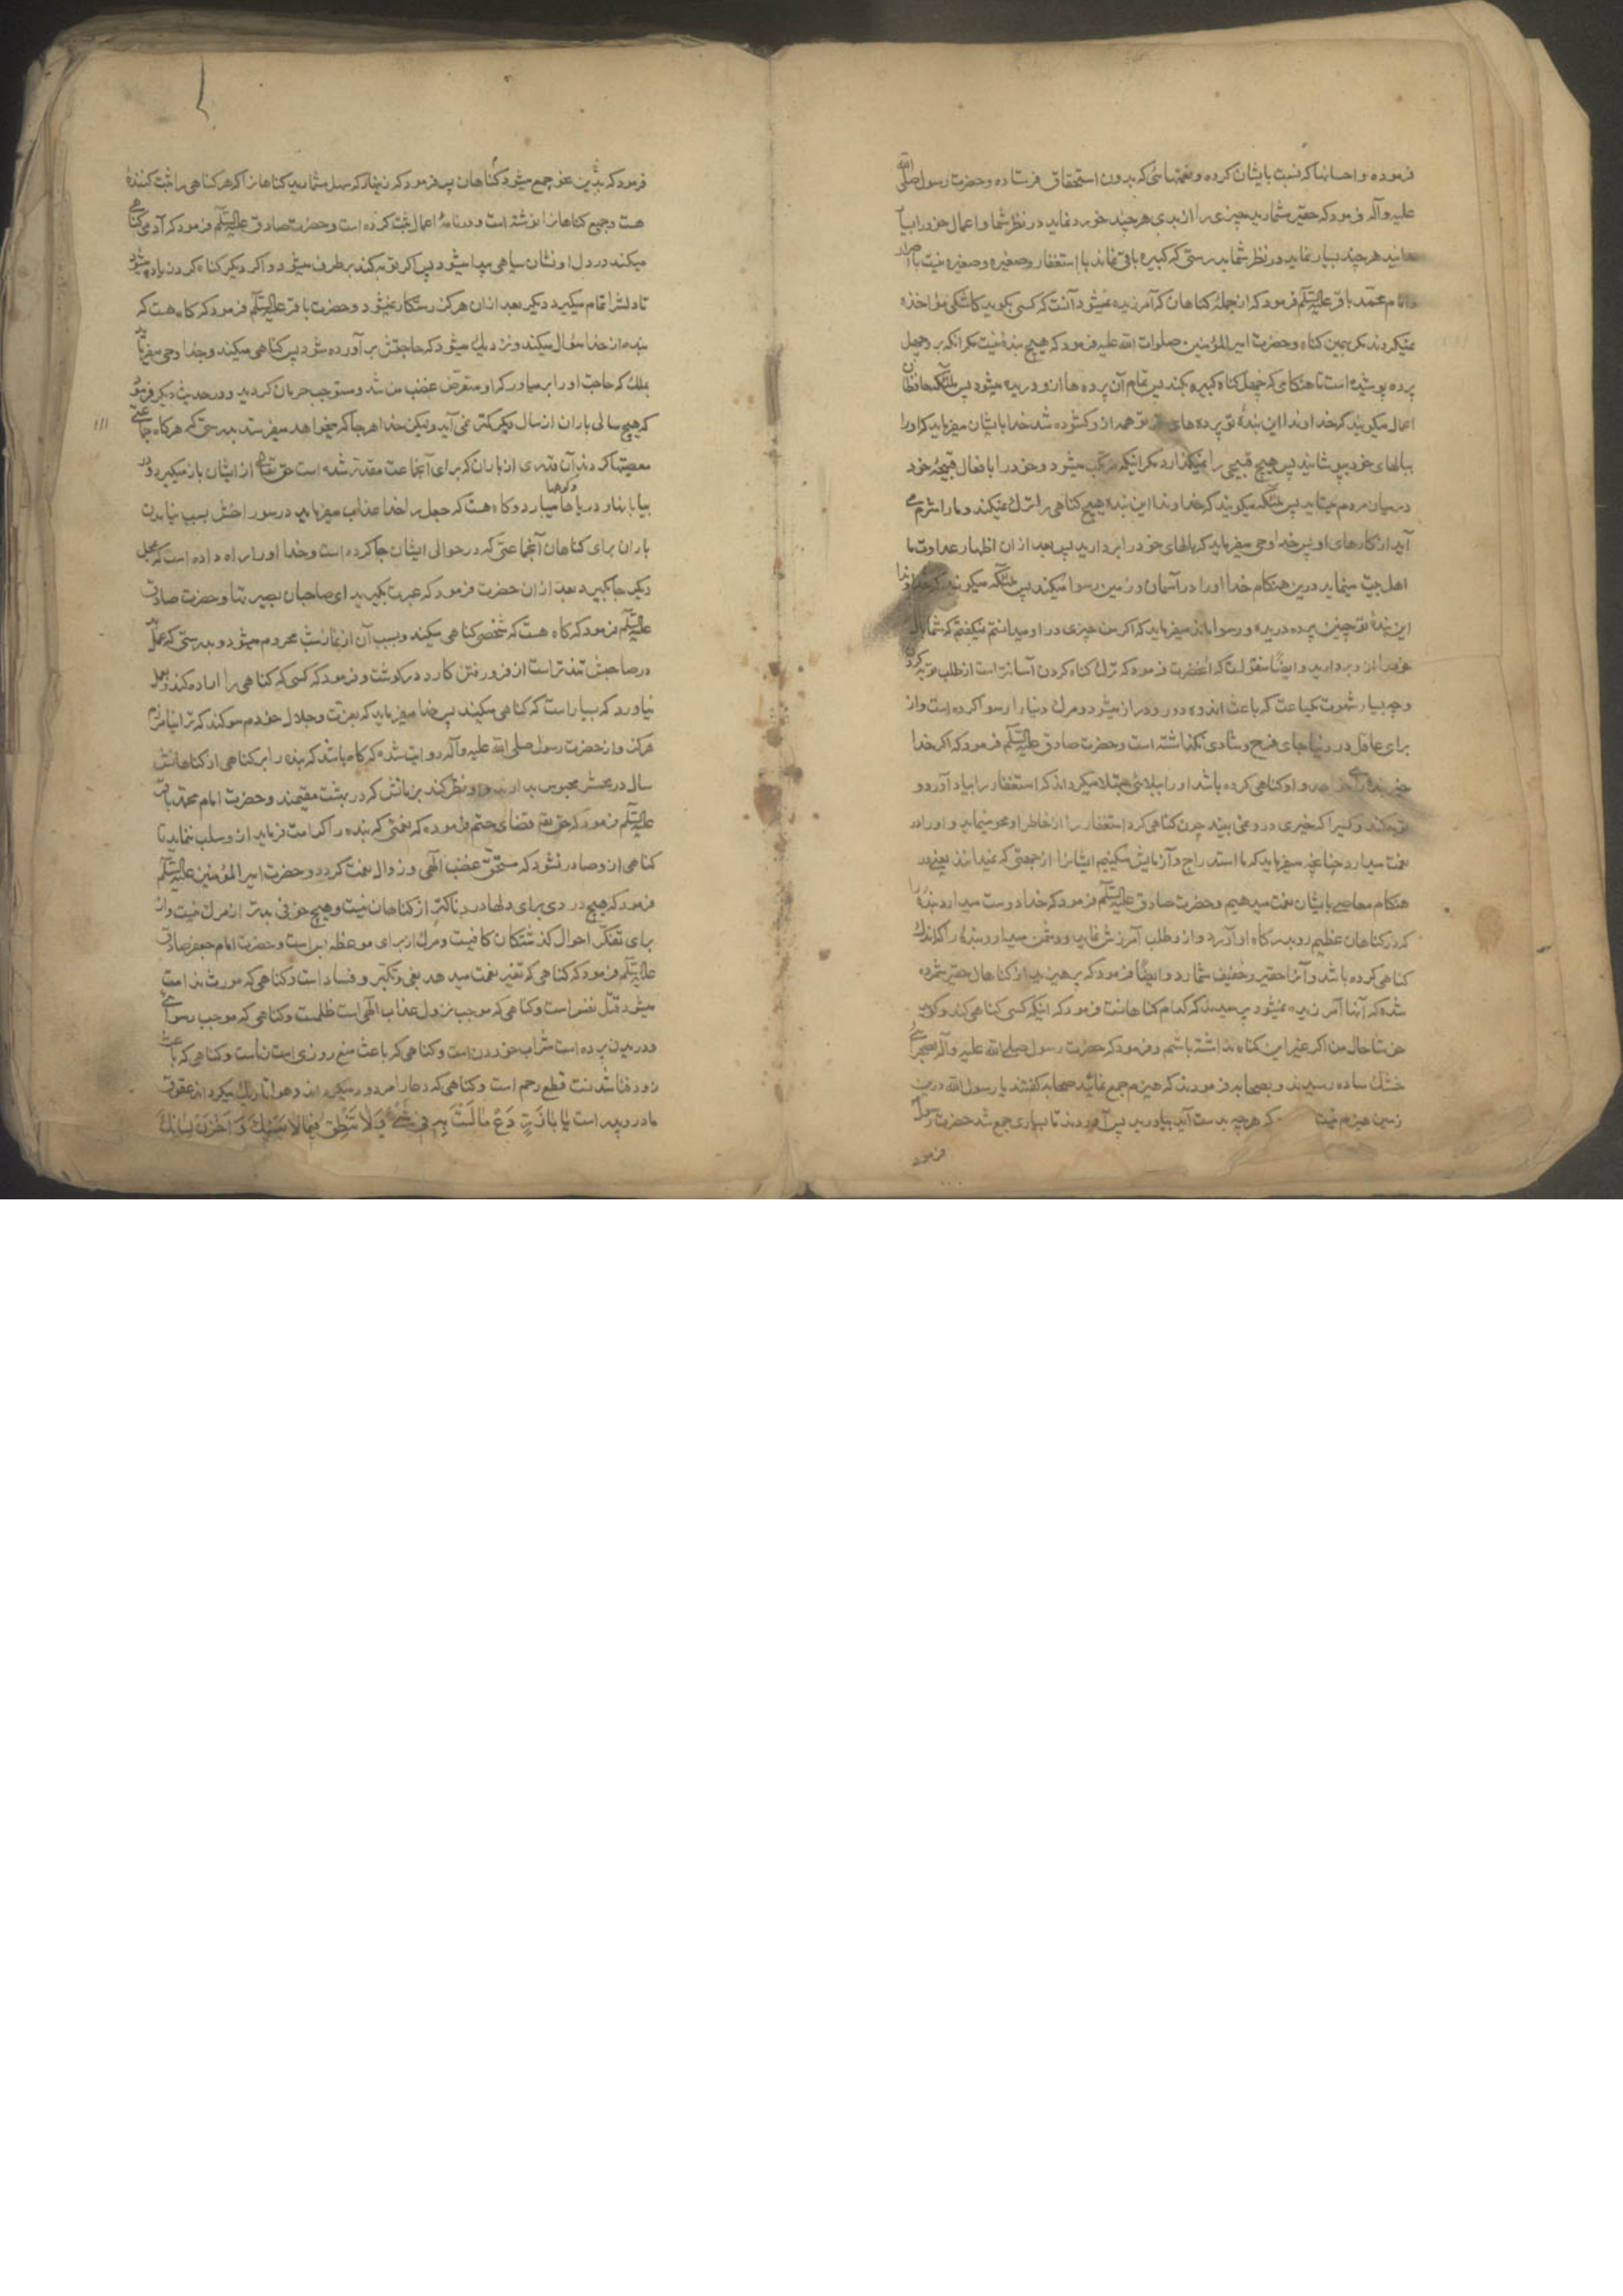 فرموده و احسانها که نسبت بایشان کرده و نعمتهائی که بدون استحقاق فرستاده و حضرت رسول صلی الله
علیه و آله فرمود که حقیر مشمارید چیزی را از بدی هر چند خورد نماید در نظر شما و اعمال خود را بسیا
مدانید هر چند بسیار نماید در نظر شما بدرستی که کبیره باقی نماند با استغفار و صغیره و صغیره نیست با اصرار
و امام محمد باقر علیه السلم فرمود که از جمله گناهان که آمرزیده نمیشود آنست که کسی بگوید کاشکی مؤاخذه
نمیکردند مگر بهمین گناه و حضرت امیر المؤمنین صلوات الله علیه فرمود که هیچ بنده نیست مگر آنکه بر و چهل
پرده پوشیده است تا هنگامی که چهل گناه کبیره بکند پس تمام آن پرده ها از و دریده میشود پس ملئکه حافظان
اعمال میکویند که خداوندا این بنده تو پرده های تو همه از و کشوده شد خدا بایشان میفرماید که او را
ببالهای خود بپوشانید پس هیچ قبیحی را نمیکذارد مکر اینکه مرتکب میشود و خود را بافعال قبیحه خود
در میان مردم میستاید پس ملئکه میکویند که خداوندا این بنده هیچ کناهی را ترک نمیکند و ما را شرم می
آید از کارهای او پس خدا وحی میفرماید که بالهای خود را بردارید پس بعد از ان اظهار عداوت ما
اهل بیت مینماید درین هنکام خدا او را در آسمان و زمین رسوا میکند پس ملئکه میکویند که خداوندا
این بنده تو چنین پرده دریده و رسوا ماند میفرماید که اکر من چیزی در او میدانستم نمیکفتم که شما بال
خود را از و بردارید و ایضا منقولست که آنحضرت فرمود که ترک کناه کردن آسانتر است از طلب توبه کردن
و چه بسیار شهوت یکساعت که باعث اندوه دور و دراز میشود و مرک دنیا را رسوا کرده است و از
برای عاقل در دنیا جای فرح و شادی نکذاشته است و حضرت صادق علیه السلم فرمود که اکر خدا
خیر بنده را خواهد و او کناهی کرده باشد او را ببلائی مبتلا میکرداند که استغفار را بیاد آورد و
توبه کند و کسی را که خیری در و نمی بیند چون کناهی کرد استغفار را از خاطر او محو مینماید و او را در
نعمت میدارد چنانچه میفرماید که ما استدراج و آزمایش میکنیم ایشانرا از جهتی که نمیدانند یعنی در
هنکام معاصی بایشان نعمت میدهیم و حضرت صادق علیه السلم فرمود که خدا دوست میدارد بنده را
که در کناهان عظیم رو بدرکاه او آورد و از و طلب آمرزش نماید و دشمن میدارد بنده را که اندک
کناهی کرده باشد و آنرا حقیر و خفیف شمارد و ایضا فرمود که بپرهیزید از کناهان حقیر شمرده
شده که آنها آمرزیده نمیشود پرسیدند که کدام کناهانست فرمود که اینکه کسی کناهی کند و کوید
خوشا حال من اکر غیر این کناه نداشته باشم و فرمود که حضرت رسول صلی الله علیه و آله بصحرای
خشک ساده رسیدند و بصحابه فرمودند که هیزم جمع نمائید صحابه کفتند یا رسول الله درین
زمین هیزم نیست که هر چه بدست آید بیاورید پس آوردند تا بسیاری جمع شد حضرت رسول
فرمود
فرمود که چنین جمع میشود کناهان پس فرمود که زینهار که سهل مشمارید کناهانرا که هر کناهی را ثبت کننده
هست و جمیع کناهانرا نوشته است و در نامه اعمال ثبت کرده است و حضرت صادق علیه السلم فرمود که آدمی کناهی
میکند در دل او نشان سیاهی پیدا میشود پس اکر توبه کند بر طرف میشود و اکر دیکر کناه کردن زیاده میشود
تا دلش را تمام میکیرد دیکر بعد از ان هرکز رستکار نمیشود و حضرت باقر علیه السلم فرمود که کاه هست که
بنده از خدا سؤال میکند و نزدیک میشود که حاجتش برآورده شود پس کناهی میکند و خدا وحی میفرماید
بملک که حاجت او را بر میاور که او متعرض غضب من شد و مستوجب حرمان کردید و در حدیث دیکر فرمود
که هیچ سالی باران از سال دیکر کمتر نمی آید ولیکن خدا هر جا که میخواهد میفرستد بدرستی که هرکاه جماعتی
معصیتها کردند آن قدری از باران که برای آنجماعت مقدر شده است حق تعالی از ایشان باز میکیرد و در
بیابانها و دریاها و کوهها میبارد و کاه هست که جعل را خدا عذاب میفرماید در سوراخش بسبب نیامدن
باران برای کناهان آنجماعتی که در حوالی ایشان جا کرده است و خدا او را راه داده است که بمحل
دیکر جا بکیرد بعد از ان حضرت فرمود که عبرت بکیرید ای صاحبان بصیرتها و حضرت صادق
علیه السلم فرمود که کاه هست که شخصی کناهی میکند و بسبب آن از نماز شب محروم میشود و بدرستی که عمل بد
در صاحبش تندتر است از فرو رفتن کارد در کوشت و فرمود که کسی که کناهی را اراده کند و بعمل
نیاورد که بسیار است که کناهی میکنید پس خدا میفرماید که بعزت و جلال خودم سوکند که ترا نیامرزم
هرکز و از حضرت رسول صلی الله علیه و آله روایت شده که کاه باشد که بنده را بر کناهی از کناهانش صد
سال در محشر محبوس بدارند و او نظر کند بزنانش که در بهشت مقیمند و حضرت امام محمد باقر
علیه السلم فرمود که حق تعالی قضای حتم فرموده که نعمتی که ببنده کرامت فرماید از و سلب ننماید تا
کناهی از و صادر نشود که مستحق غضب الهی و زوال نعمت کردد و حضرت امیر المؤمنین علیه السلم
فرمود که هیچ دردی برای دلها دردناکتر از کناهان نیست و هیچ خوفی بدتر از مرک نیست و از
برای تفکر احوال کذشتکان کافیست و مرک از برای موعظه بس است و حضرت امام جعفر صادق
علیه السلم فرمود که کناهی که تغیر نعمت میدهد بغی و تکبر و فساد است و کناهی که مورث ندامت
میشود قتل نفس است و کناهی که موجب نزول عذاب الهی است ظلمست و کناهی که موجب رسوائی
و دریدن پرده است شراب خوردن است و کناهی که باعث منع روزی است زناست و کناهی که باعث
زود فنا شدنست قطع رحم است و کناهی که دعا را مردود میکرداند و هوا را تاریک میکرداند عقوق
مادر و پدر است یا باذر دع ما لست منه فی شئ و لا تنطق فیما لا یعنیک و اخزن لسانک